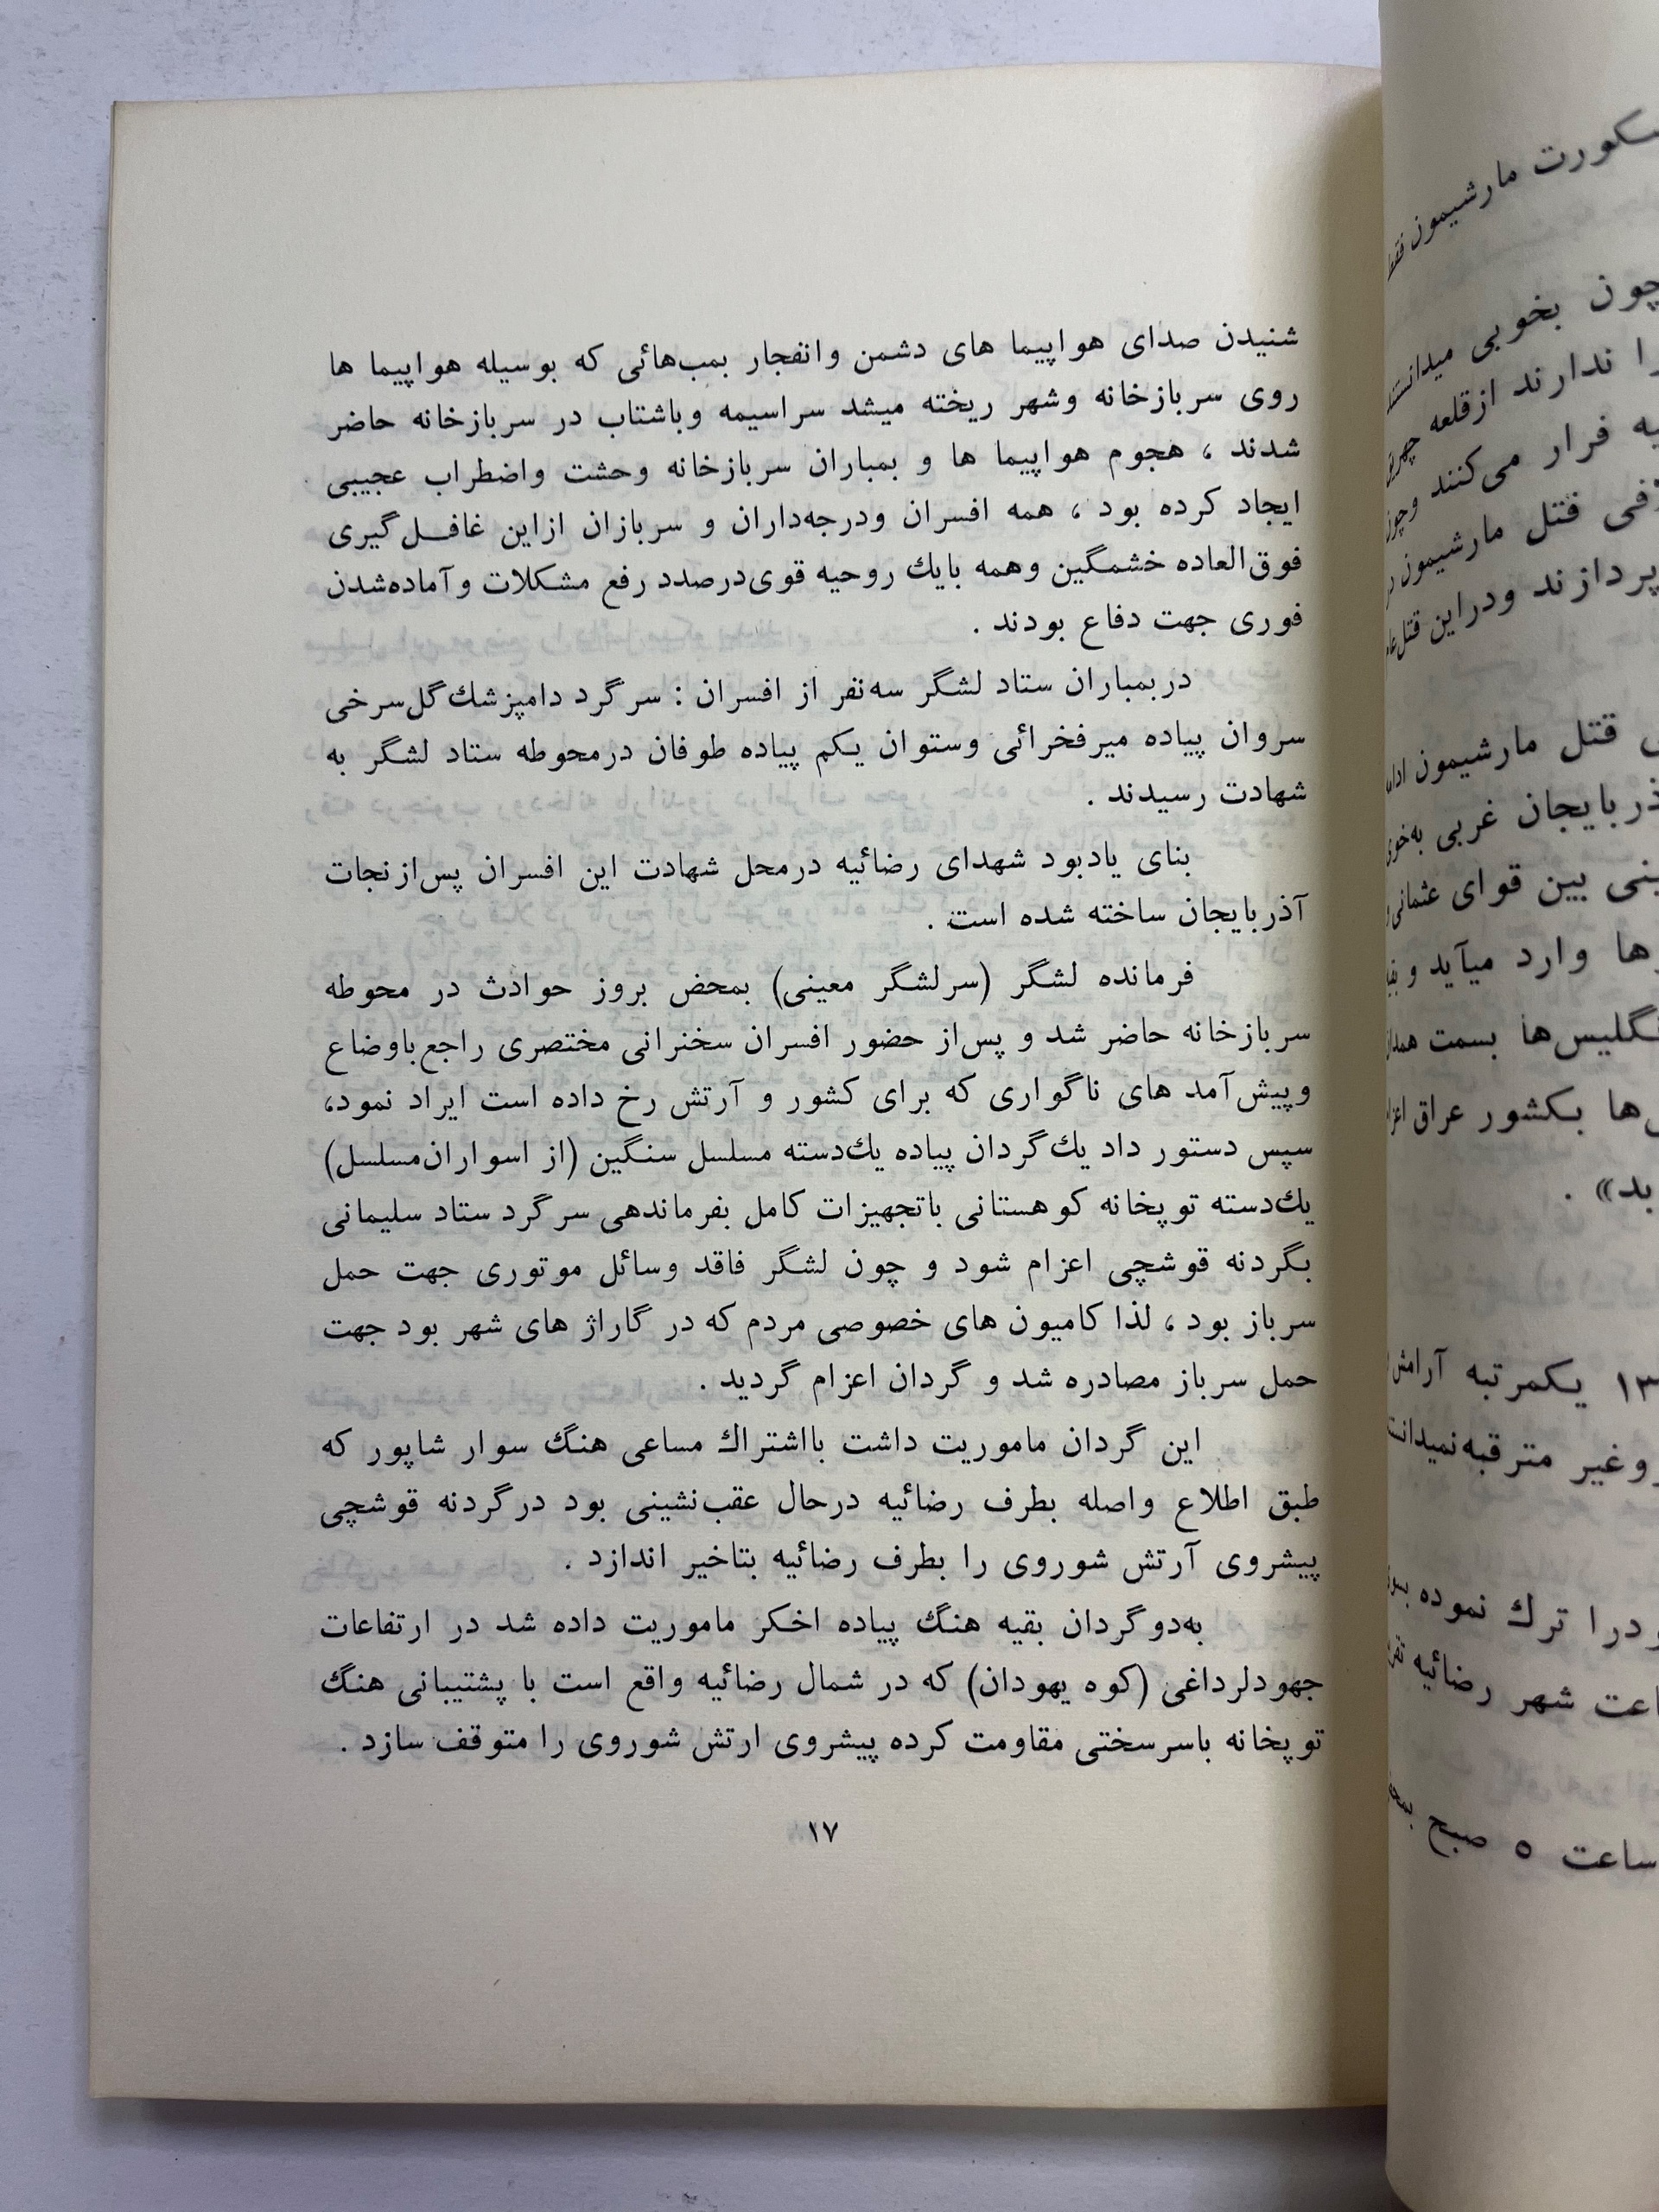 شنیدن صدای هواپیما های دشمن وانفجار بمب‌هائی که بوسیله هواپیما ها
روی سربازخانه وشهر ریخته میشد سراسیمه وباشتاب در سربازخانه حاضر
شدند ، هجوم هواپیما ها و بمباران سربازخانه وحشت واضطراب عجیبی
ایجاد کرده بود ، همه افسران ودرجه‌داران و سربازان ازاین غافل‌گیری
فوق‌العاده خشمگین وهمه بایك روحیه قوی‌درصدد رفع مشکلات وآماده‌شدن
فوری جهت دفاع بودند .
دربمباران ستاد لشگر سه‌نفر از افسران : سرگرد دامپزشك گل‌سرخی
سروان پیاده میرفخرائی وستوان یکم پیاده طوفان درمحوطه ستاد لشگر به
شهادت رسیدند .
بنای یادبود شهدای رضائیه درمحل شهادت این افسران پس‌ازنجات
آذربایجان ساخته شده است .
فرمانده لشگر (سرلشگر معینی) بمحض بروز حوادث در محوطه
سربازخانه حاضر شد و پس‌از حضور افسران سخنرانی مختصری راجع‌باوضاع
وپیش‌آمد های ناگواری که برای کشور و آرتش رخ داده است ایراد نمود،
سپس دستور داد یك‌گردان پیاده یك‌دسته مسلسل سنگین (از اسواران‌مسلسل)
یك‌دسته توپخانه کوهستانی باتجهیزات کامل بفرماندهی سرگرد ستاد سلیمانی
بگردنه قوشچی اعزام شود و چون لشگر فاقد وسائل موتوری جهت حمل
سرباز بود ، لذا کامیون های خصوصی مردم که در گاراژ های شهر بود جهت
حمل سرباز مصادره شد و گردان اعزام گردید .
این گردان ماموریت داشت بااشتراك مساعی هنگ سوار شاپور که
طبق اطلاع واصله بطرف رضائیه درحال عقب‌نشینی بود درگردنه قوشچی
پیشروی آرتش شوروی را بطرف رضائیه بتاخیر اندازد .
به‌دوگردان بقیه هنگ پیاده اخکر ماموریت داده شد در ارتفاعات
جهودلرداغی (کوه یهودان) که در شمال رضائیه واقع است با پشتیبانی هنگ
توپخانه باسرسختی مقاومت کرده پیشروی ارتش شوروی را متوقف سازد .
۱۷
مارشیمون فقط
چون بخوبی میدانستند
را ندارند ازقلعه
فرار می‌کنند
قتل مارشیمون
پردازند ودراین
قتل مارشیمون
آذربایجان غربی
بین قوای عثمانی
ها وارد میآید و
بسمت
ها بکشور عراق
بد» .
یکمرتبه آرامش
وغیر مترقبه‌نمیدانست
ترك نموده
شهر رضائیه
ساعت ۵ صبح